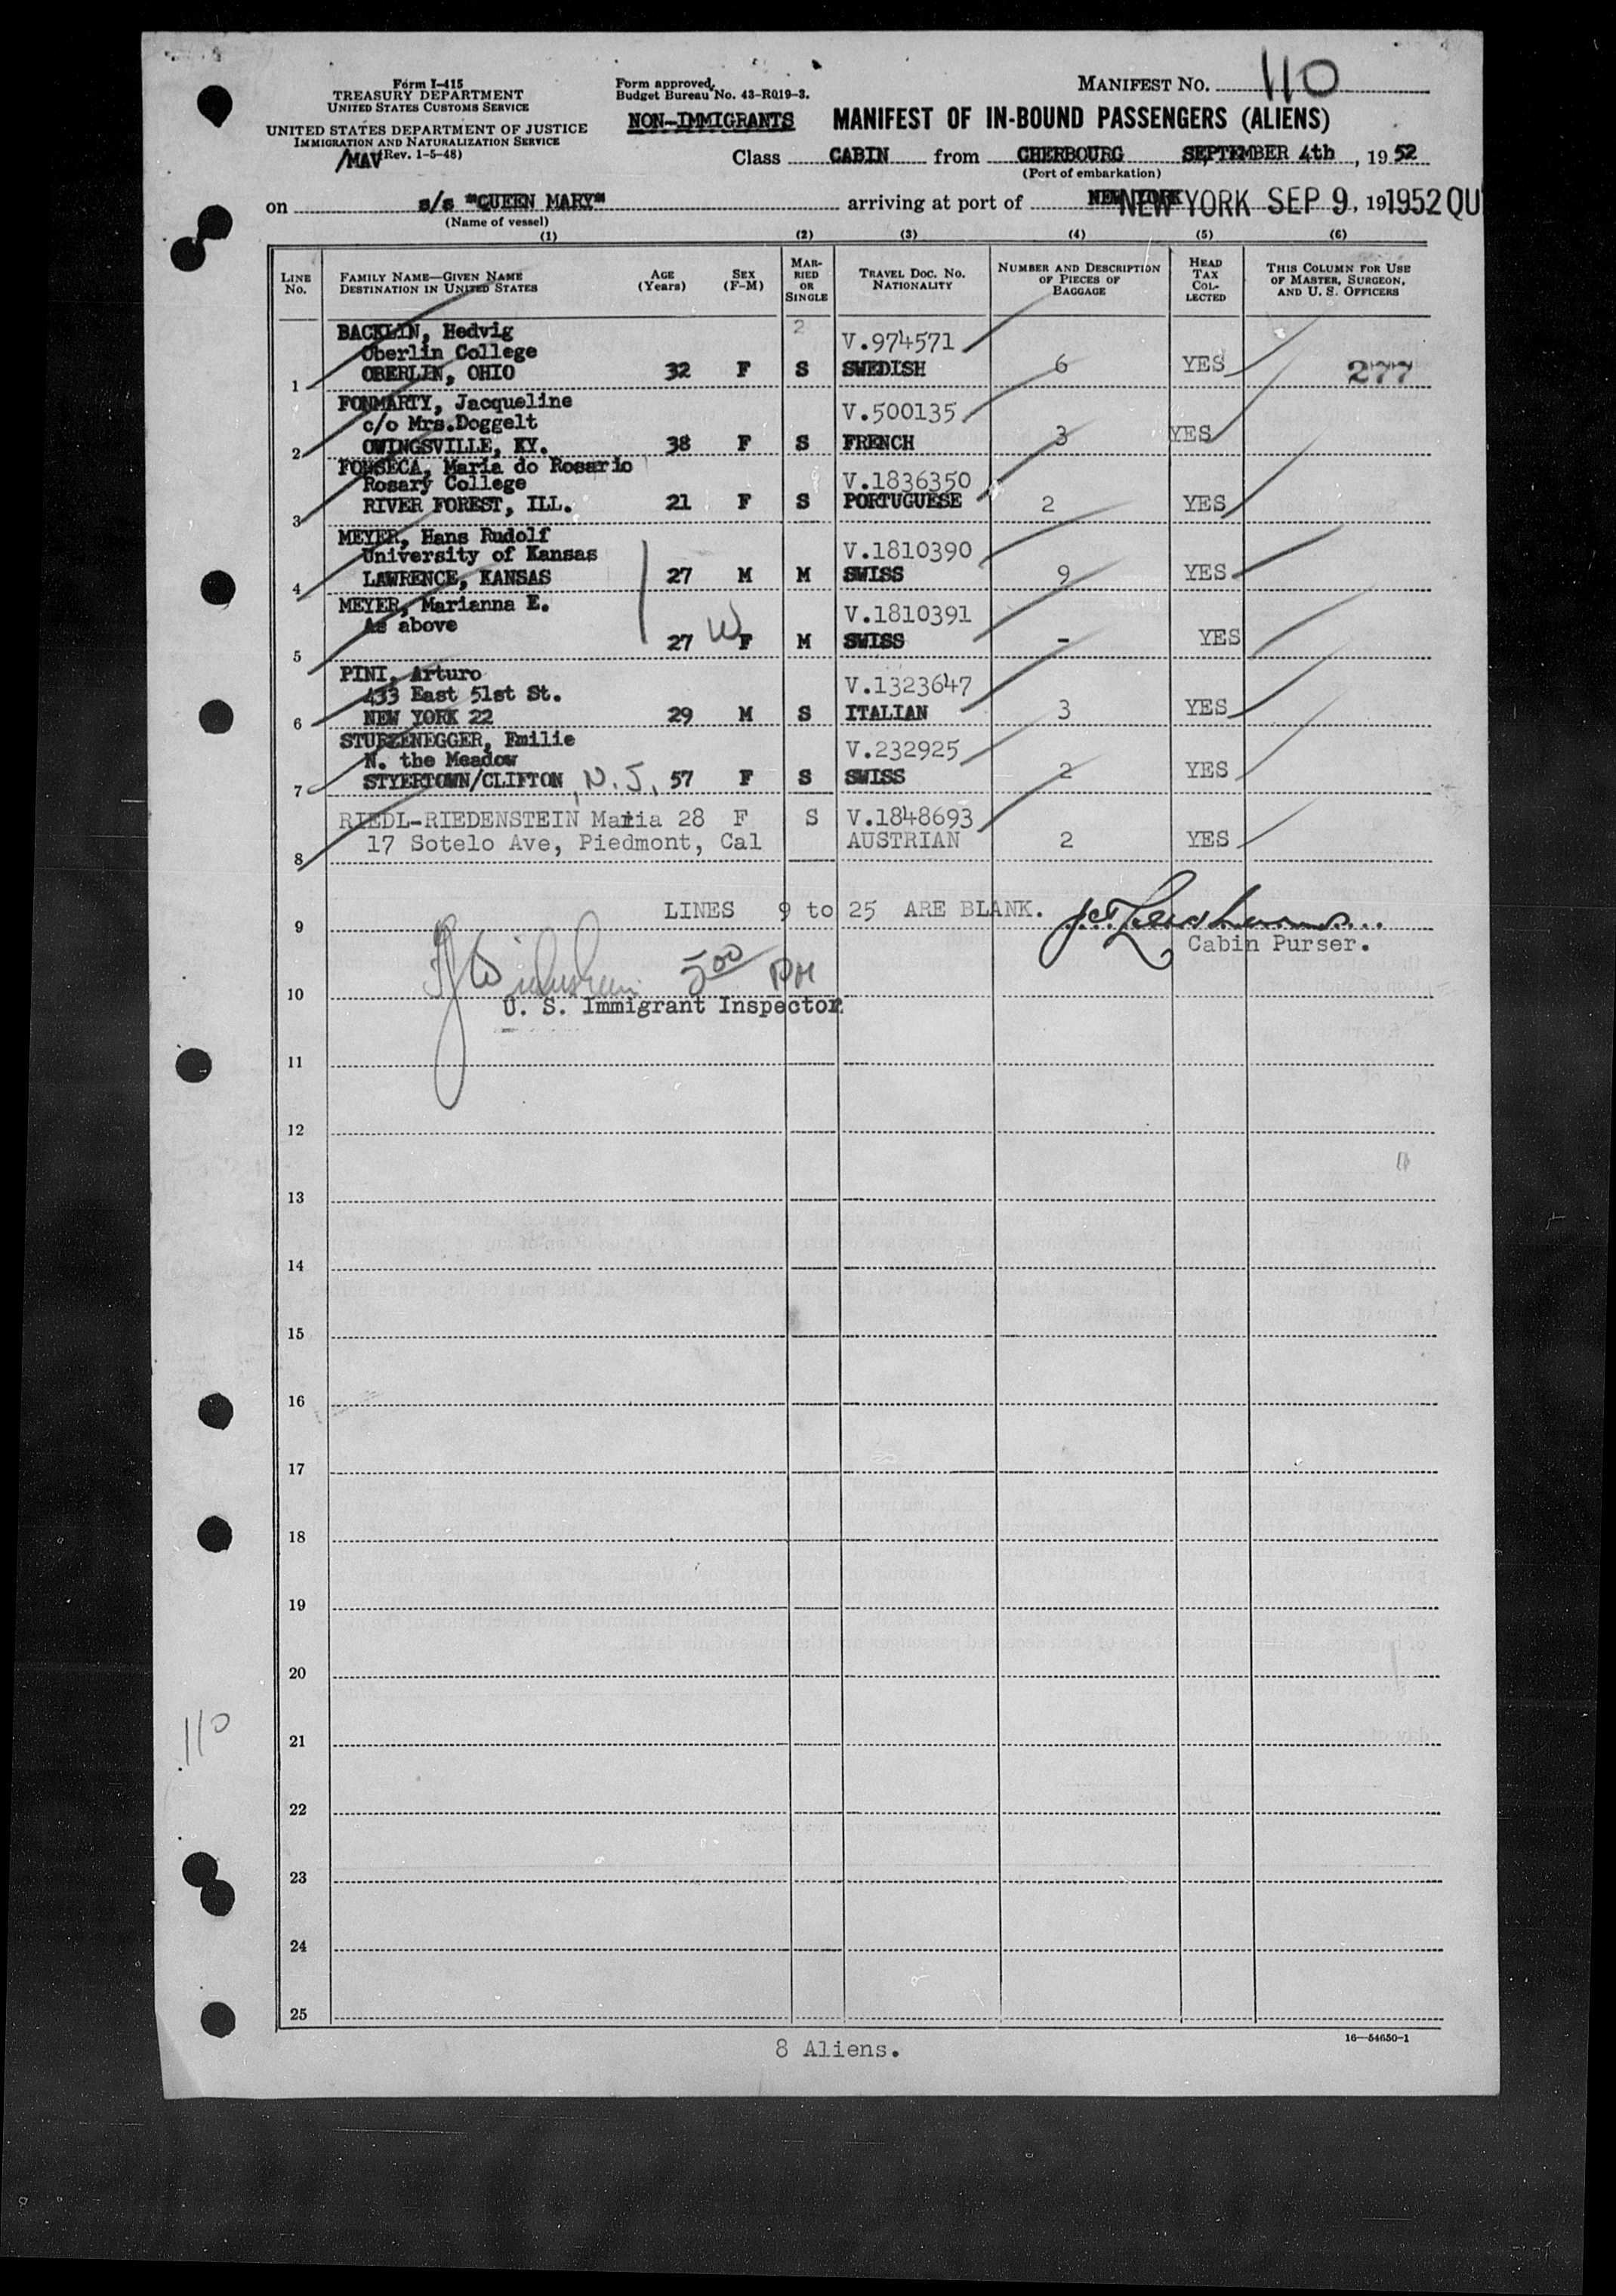 Form I-415
TREASURY DEPARTMENT
UNITED STATES CUSTOMS SERVICE
UNITED STATES DEPARTMENT OF JUSTICE
IMMIGRATION AND NATURALIZATION SERVICE
/MAV (Rev. 1-5-48)
Form approved.
Budget Bureau No. 43-R019-3.
NON-IMMIGRANTS
MANIFEST NO. 110
MANIFEST OF IN-BOUND PASSENGERS (ALIENS)
Class CABIN from CHERBOURG SEPTEMBER 4th, 1952
(Port of embarkation)
on s/s "QUEEN MARY" arriving at port of NEW YORK NEW YORK SEP 9, 19 1952 QU
(Name of vessel)
(1) (2) (3) (4) (5) (6)
LINE No. FAMILY NAME—GIVEN NAME DESTINATION IN UNITED STATES AGE (Years) SEX (F-M) MARRIED OR SINGLE TRAVEL DOC. NO. NATIONALITY NUMBER AND DESCRIPTION OF PIECES OF BAGGAGE HEAD TAX COLLECTED THIS COLUMN FOR USE OF MASTER, SURGEON, AND U. S. OFFICERS
2
BACKLIN, Hedvig V.974571
Oberlin College
1 OBERLIN, OHIO 32 F S SWEDISH 6 YES 277
FONMARTY, Jacqueline V.500135
c/o Mrs.Doggelt
2 OWINGSVILLE, KY. 38 F S FRENCH 3 YES
FONSECA, Maria do Rosario
Rosary College V.1836350
3 RIVER FOREST, ILL. 21 F S PORTUGUESE 2 YES
MEYER, Hans Rudolf
University of Kansas V.1810390
4 LAWRENCE, KANSAS 27 M M SWISS 9 YES
MEYER, Marianna E. V.1810391
As above
5 27 W F M SWISS - YES
PINI, Arturo V.1323647
433 East 51st St.
6 NEW YORK 22 29 M S ITALIAN 3 YES
STURZENEGGER, Emilie V.232925
N. the Meadow
7 STYERTOWN/CLIFTON, N.J. 57 F S SWISS 2 YES
RIEDL-RIEDENSTEIN Maria 28 F S V.1848693
8 17 Sotelo Ave, Piedmont, Cal AUSTRIAN 2 YES
9 LINES 9 to 25 ARE BLANK.
Cabin Purser.
500 PM
10
U. S. Immigrant Inspector
11
12
13
14
15
16
17
18
19
20
110
21
22
23
24
25
16—54650-1
8 Aliens.